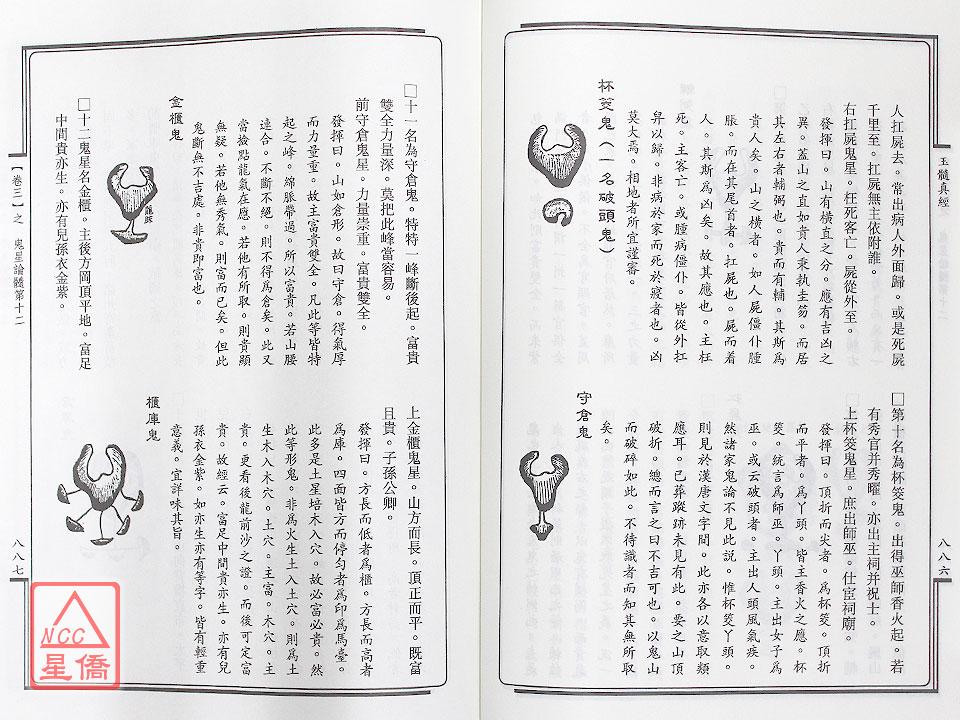 玉髓真經
八八六
人扛屍去。常出病人外面歸。或是死屍
千里至。扛屍無主依附誰。
右扛屍鬼星。枉死客亡。屍從外至。
發揮曰。山有橫直之分。應有吉凶之
異。蓋山之直如貴人秉執圭笏。而居
其左右者輔弼也。貴而有輔。其斯爲
貴人矣。山之橫者。如人屍僵仆腫
脹。而在其尾首者。扛屍也。屍而着
人。其斯為凶矣。故其應也。主枉
死。主客亡。或腫病僵仆。皆從外扛
舁以歸。非病於家而死於寢者也。凶
莫大焉。相地者所宜謹審。
杯筊鬼（一名破頭鬼）
□第十名為杯筊鬼。出得巫師香火起。若
有秀官并秀曜。亦出主祠并祝士。
□上杯筊鬼星。庶出師巫。仕宦祠廟。
發揮曰。頂折而尖者。爲杯筊。頂折
而平者。爲丫頭。皆主香火之應。杯
筊。統言爲師巫。丫頭。主出女子爲
巫。或云破頭者。主出人頭風氣疾。
然諸家鬼論不見此説。惟杯筊丫頭。
則見於漢唐文字間。此亦各以意取類
應耳。已葬蹤跡未見有此。要之山頂
破折。總而言之曰不吉可也。以鬼山
而破碎如此。不待識者而知其無所取
矣。
守倉鬼
□十一名為守倉鬼。特特一峰斷後起。富貴
雙全力量深。莫把此峰當容易。
前守倉鬼星。力量崇重。富貴雙全。
發揮曰。山如倉形。故曰守倉。得氣厚
而力量重。故主富貴雙全。凡此等皆特
起之峰。綿脈帶過。所以富貴。若山腰
連合。不斷不絕。則不得為倉矣。此又
當撿點龍氣在應。若他有所取。則貴顯
無疑。若他無秀氣。則富而已矣。但此
鬼斷無不吉處。非貴即富也。
金櫃鬼
□十二鬼星名金櫃。主後方岡頂平地。富足
中間貴亦生。亦有兒孫衣金紫。
上金櫃鬼星。山方而長。頂正而平。既富
且貴。子孫公卿。
發揮曰。方長而低者為櫃。方長而高者
爲庫。四面皆方而停勻者爲印爲馬臺。
此多是土星培木入穴。故必富必貴。然
此等形鬼。非爲火生土入土穴。則爲土
生木入木穴。土穴。主富。木穴。主
貴。更看後龍前沙之證。而後可定富
貴。故經云。富足中間貴亦生。亦有兒
孫衣金紫。如亦生亦有等字。皆有輕重
意義。宜詳味其旨。
櫃庫鬼
【卷三】之 鬼星論髓第十二
八八七
NCC
星僑